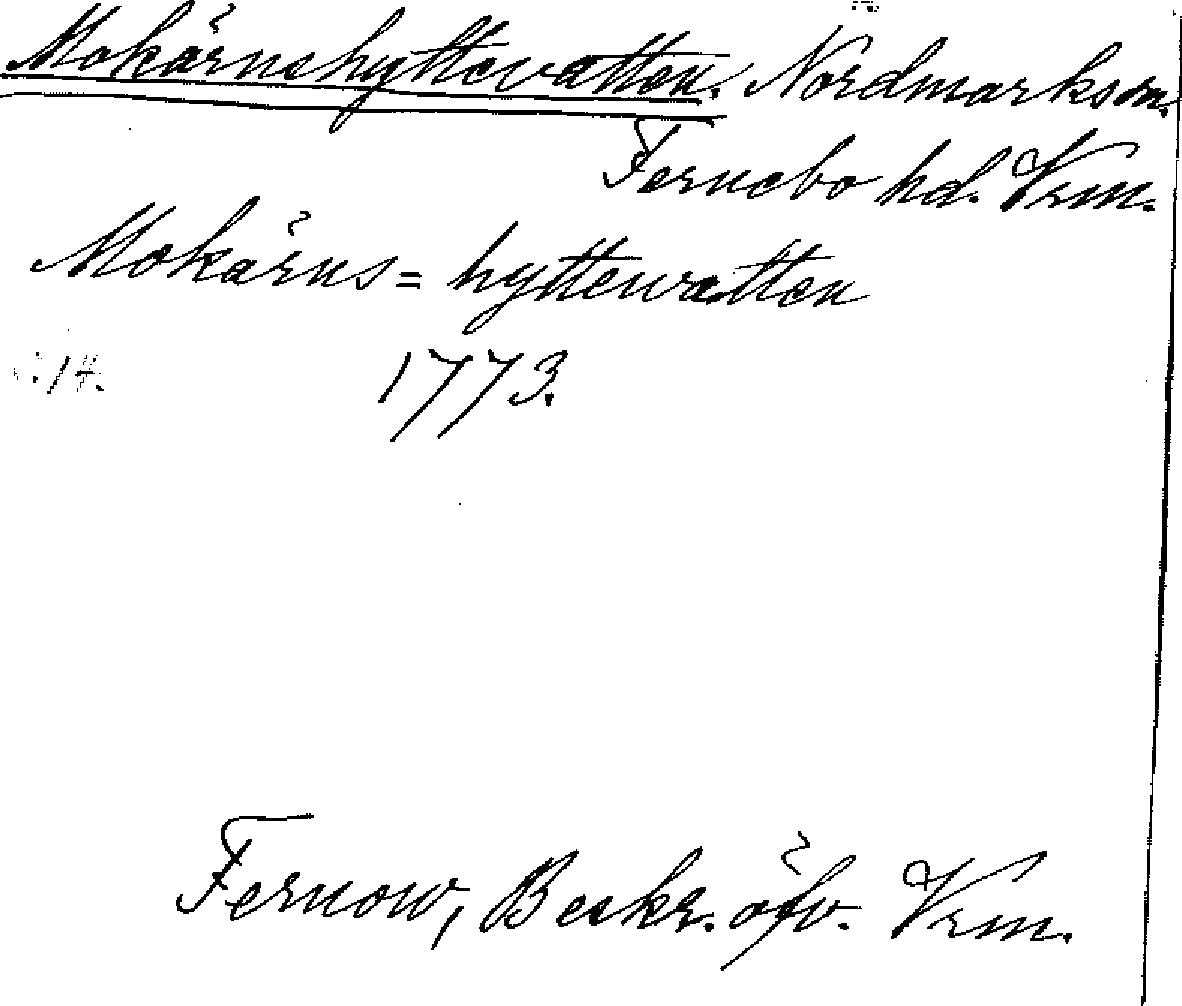 Mokärnshyttevatten. Nordmarks sn.
Fernebo hd. Vrm.
Mokärns= hyttewatten
1773.
Fernow, Beskr. öfv. Vrm.